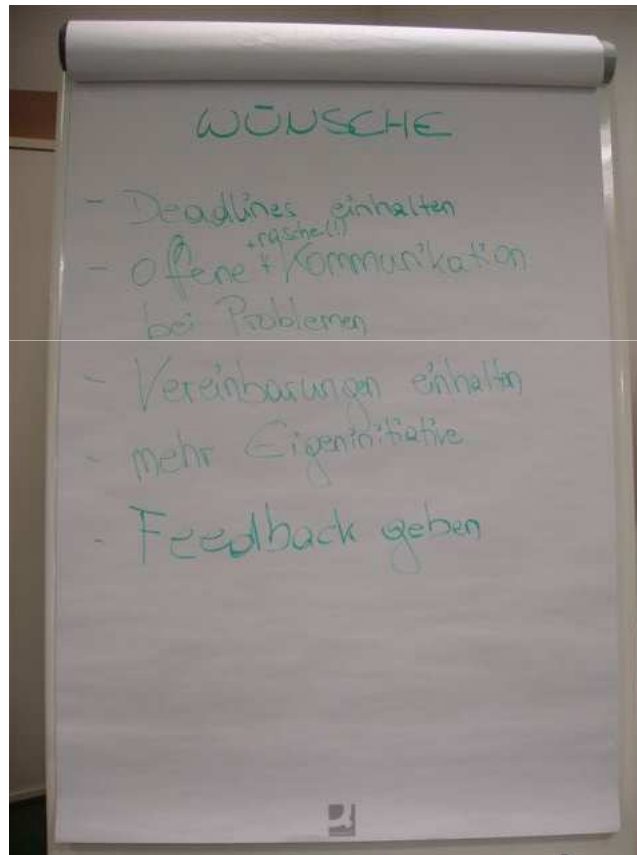 WÜNSCHE
- Deadlines einhalten
+ rasche(!)
- Offene + Kommunikation
bei Problemen
- Vereinbarungen einhalten
- mehr Eigeninitiative
- Feedback geben